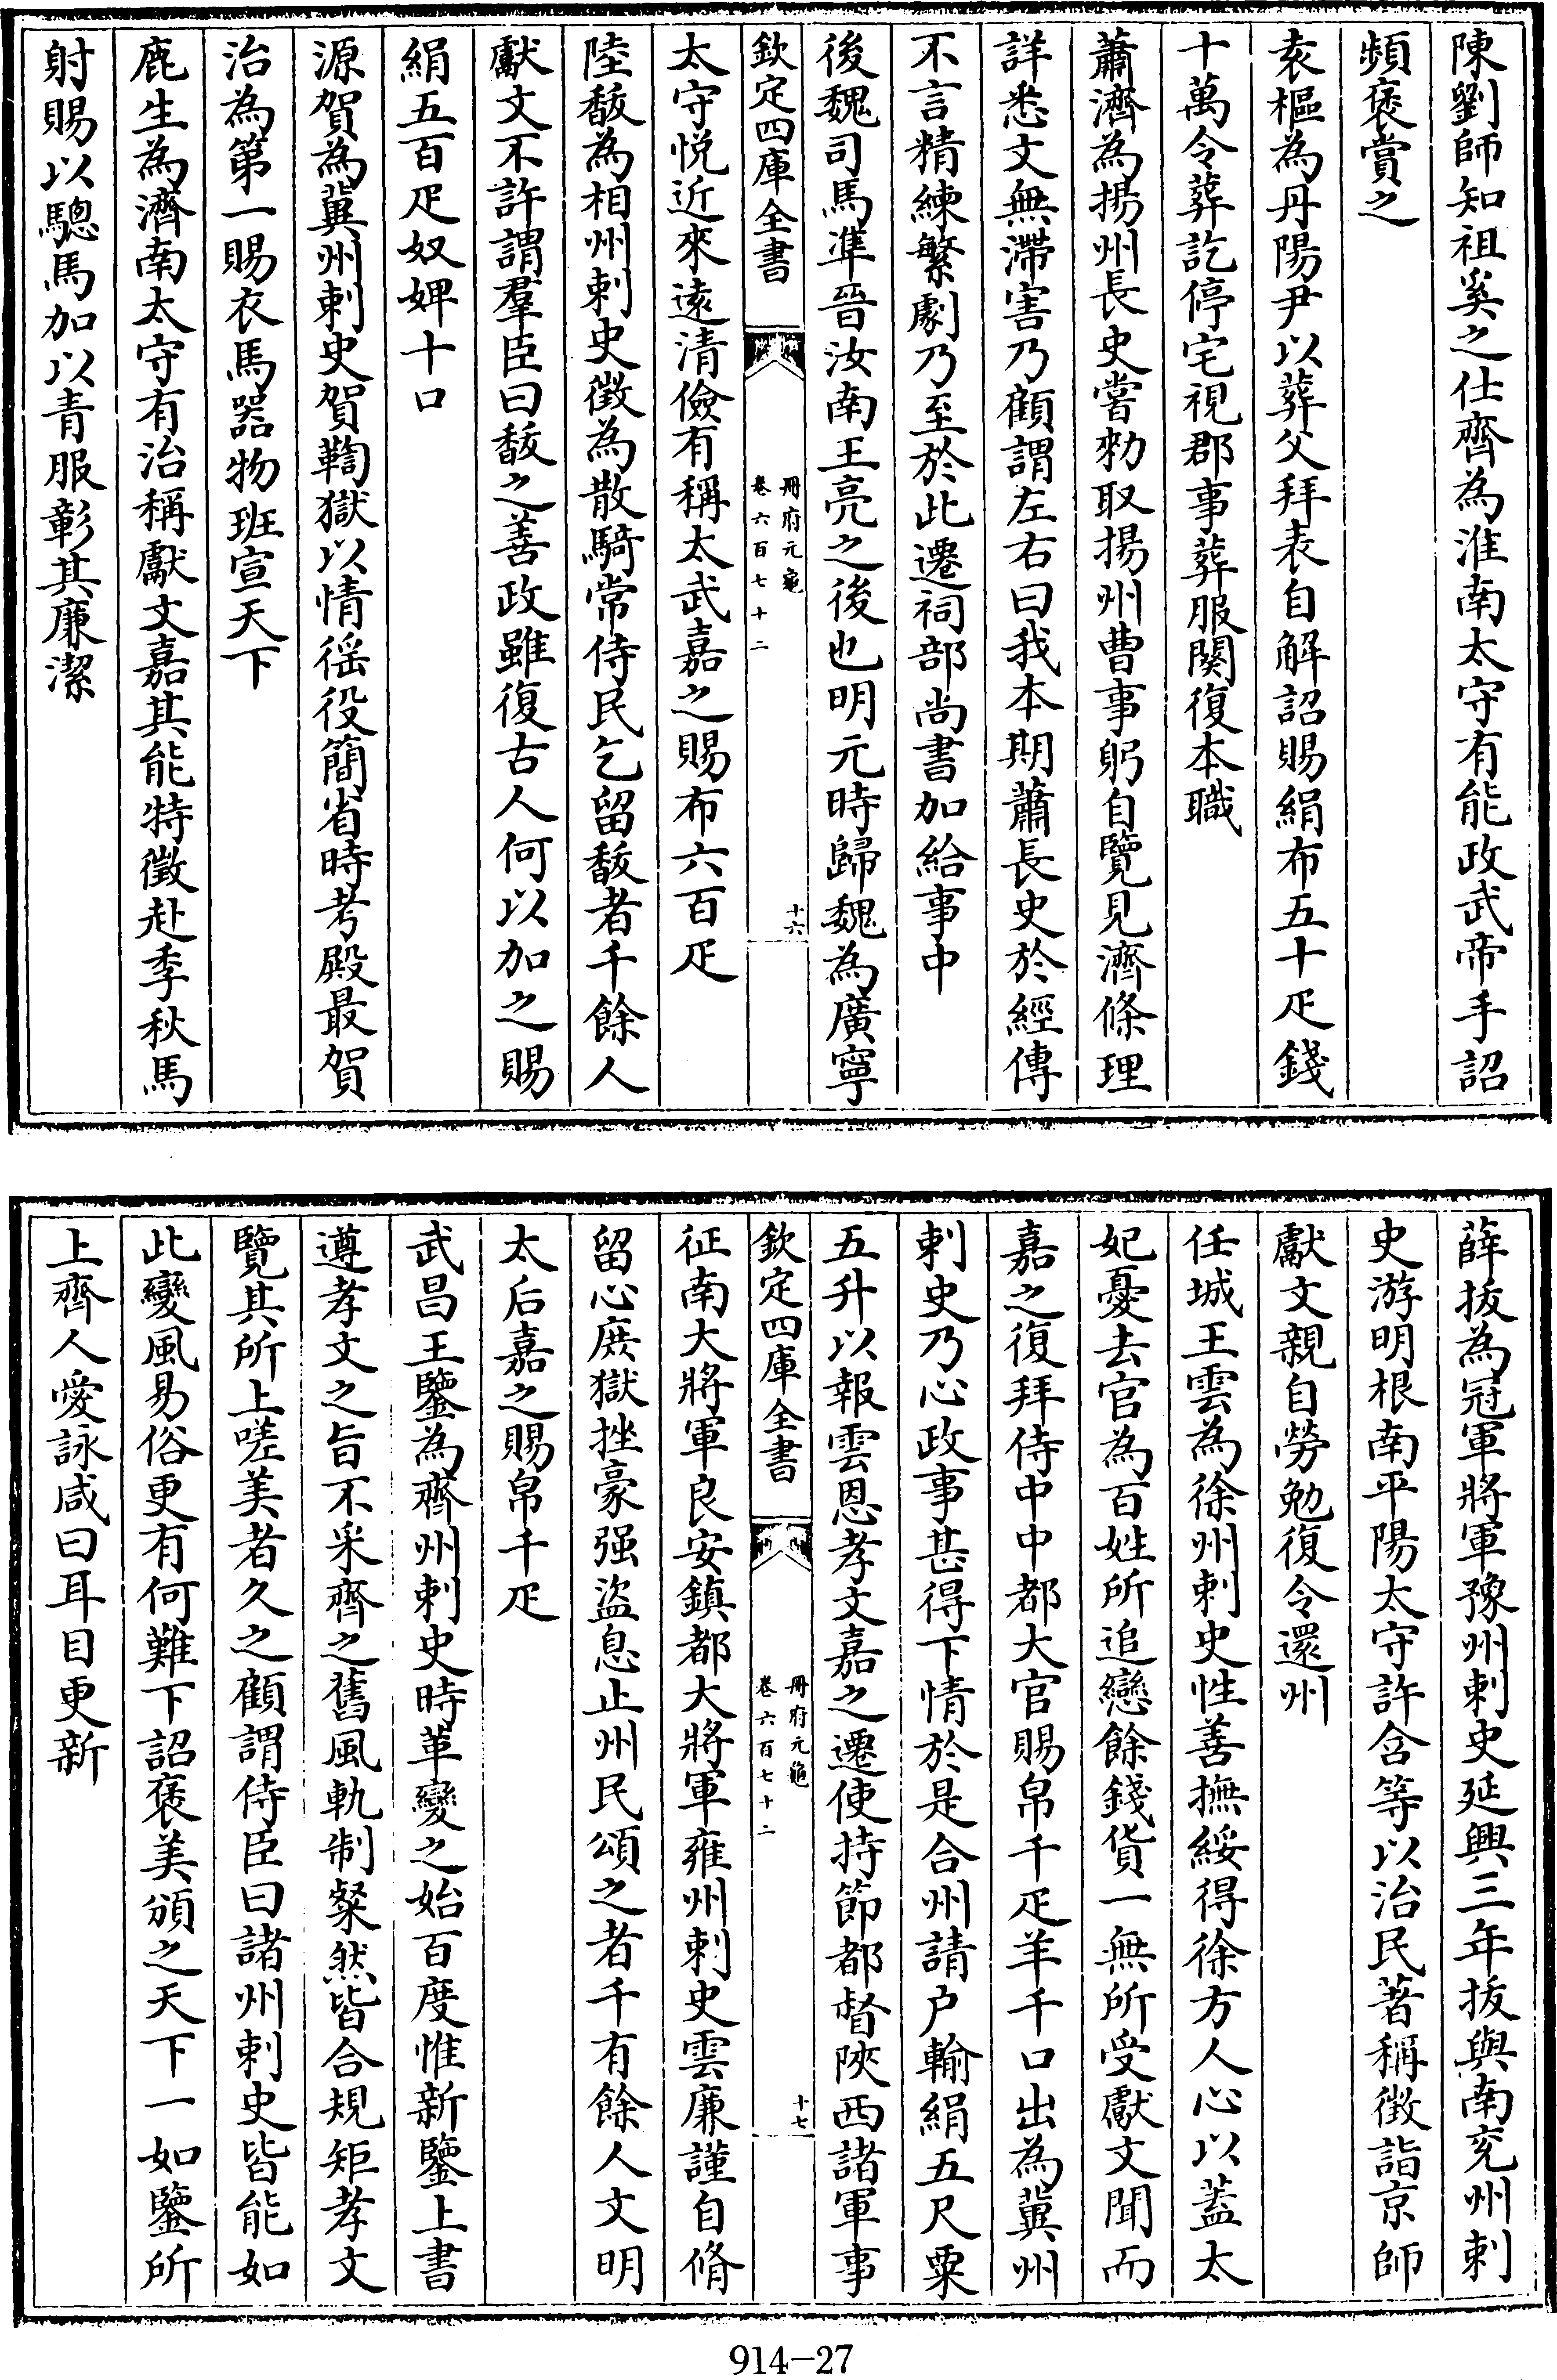 陳劉師知祖奚之仕齊為淮南太守有能政武帝手詔
頻褒賞之
袁樞為丹陽尹以葬父拜表自解詔賜絹布五十疋錢
十萬令葬訖停宅視郡事葬服闋復本職
蕭濟為揚州長史嘗勑取揚州曹事躬自覽見濟條理
詳悉文無滯害乃顧謂左右曰我本期蕭長史於經傳
不言精練繁劇乃至於此遷祠部尚書加給事中
後魏司馬準晉汝南王亮之後也明元時歸魏為廣寧
欽定四庫全書
冊府元龜
卷六百七十二
十六
太守悦近來遠清儉有稱太武嘉之賜布六百疋
陸馛為相州刺史徵為散騎常侍民乞留馛者千餘人
獻文不許謂羣臣曰馛之善政雖復古人何以加之賜
絹五百疋奴婢十口
源賀為冀州刺史賀鞫獄以情徭役簡省時考殿最賀
治為第一賜衣馬器物班宣天下
鹿生為濟南太守有治稱獻文嘉其能特徵赴季秋馬
射賜以驄馬加以青服彰其廉潔
薛拔為冠軍將軍豫州刺史延興三年拔與南兖州刺
史游明根南平陽太守許含等以治民著稱徵詣京師
獻文親自勞勉復令還州
任城王雲為徐州刺史性善撫綏得徐方人心以蓋太
妃憂去官為百姓所追戀餘錢貨一無所受獻文聞而
嘉之復拜侍中中都大官賜帛千疋羊千口出為冀州
刺史乃心政事甚得下情於是合州請户輸絹五尺粟
五升以報雲恩孝文嘉之遷使持節都督陝西諸軍事
欽定四庫全書
冊府元龜
卷六百七十二
十七
征南大將軍良安鎮都大將軍雍州刺史雲廉謹自脩
留心庶獄挫豪强盜息止州民頌之者千有餘人文明
太后嘉之賜帛千疋
武昌王鑒為齊州刺史時革變之始百度惟新鑒上書
遵孝文之旨不采齊之舊風軌制粲然皆合規矩孝文
覽其所上嗟美者久之顧謂侍臣曰諸州刺史皆能如
此變風易俗更有何難下詔褒美頒之天下一如鑒所
上齊人愛詠咸曰耳目更新
914-27